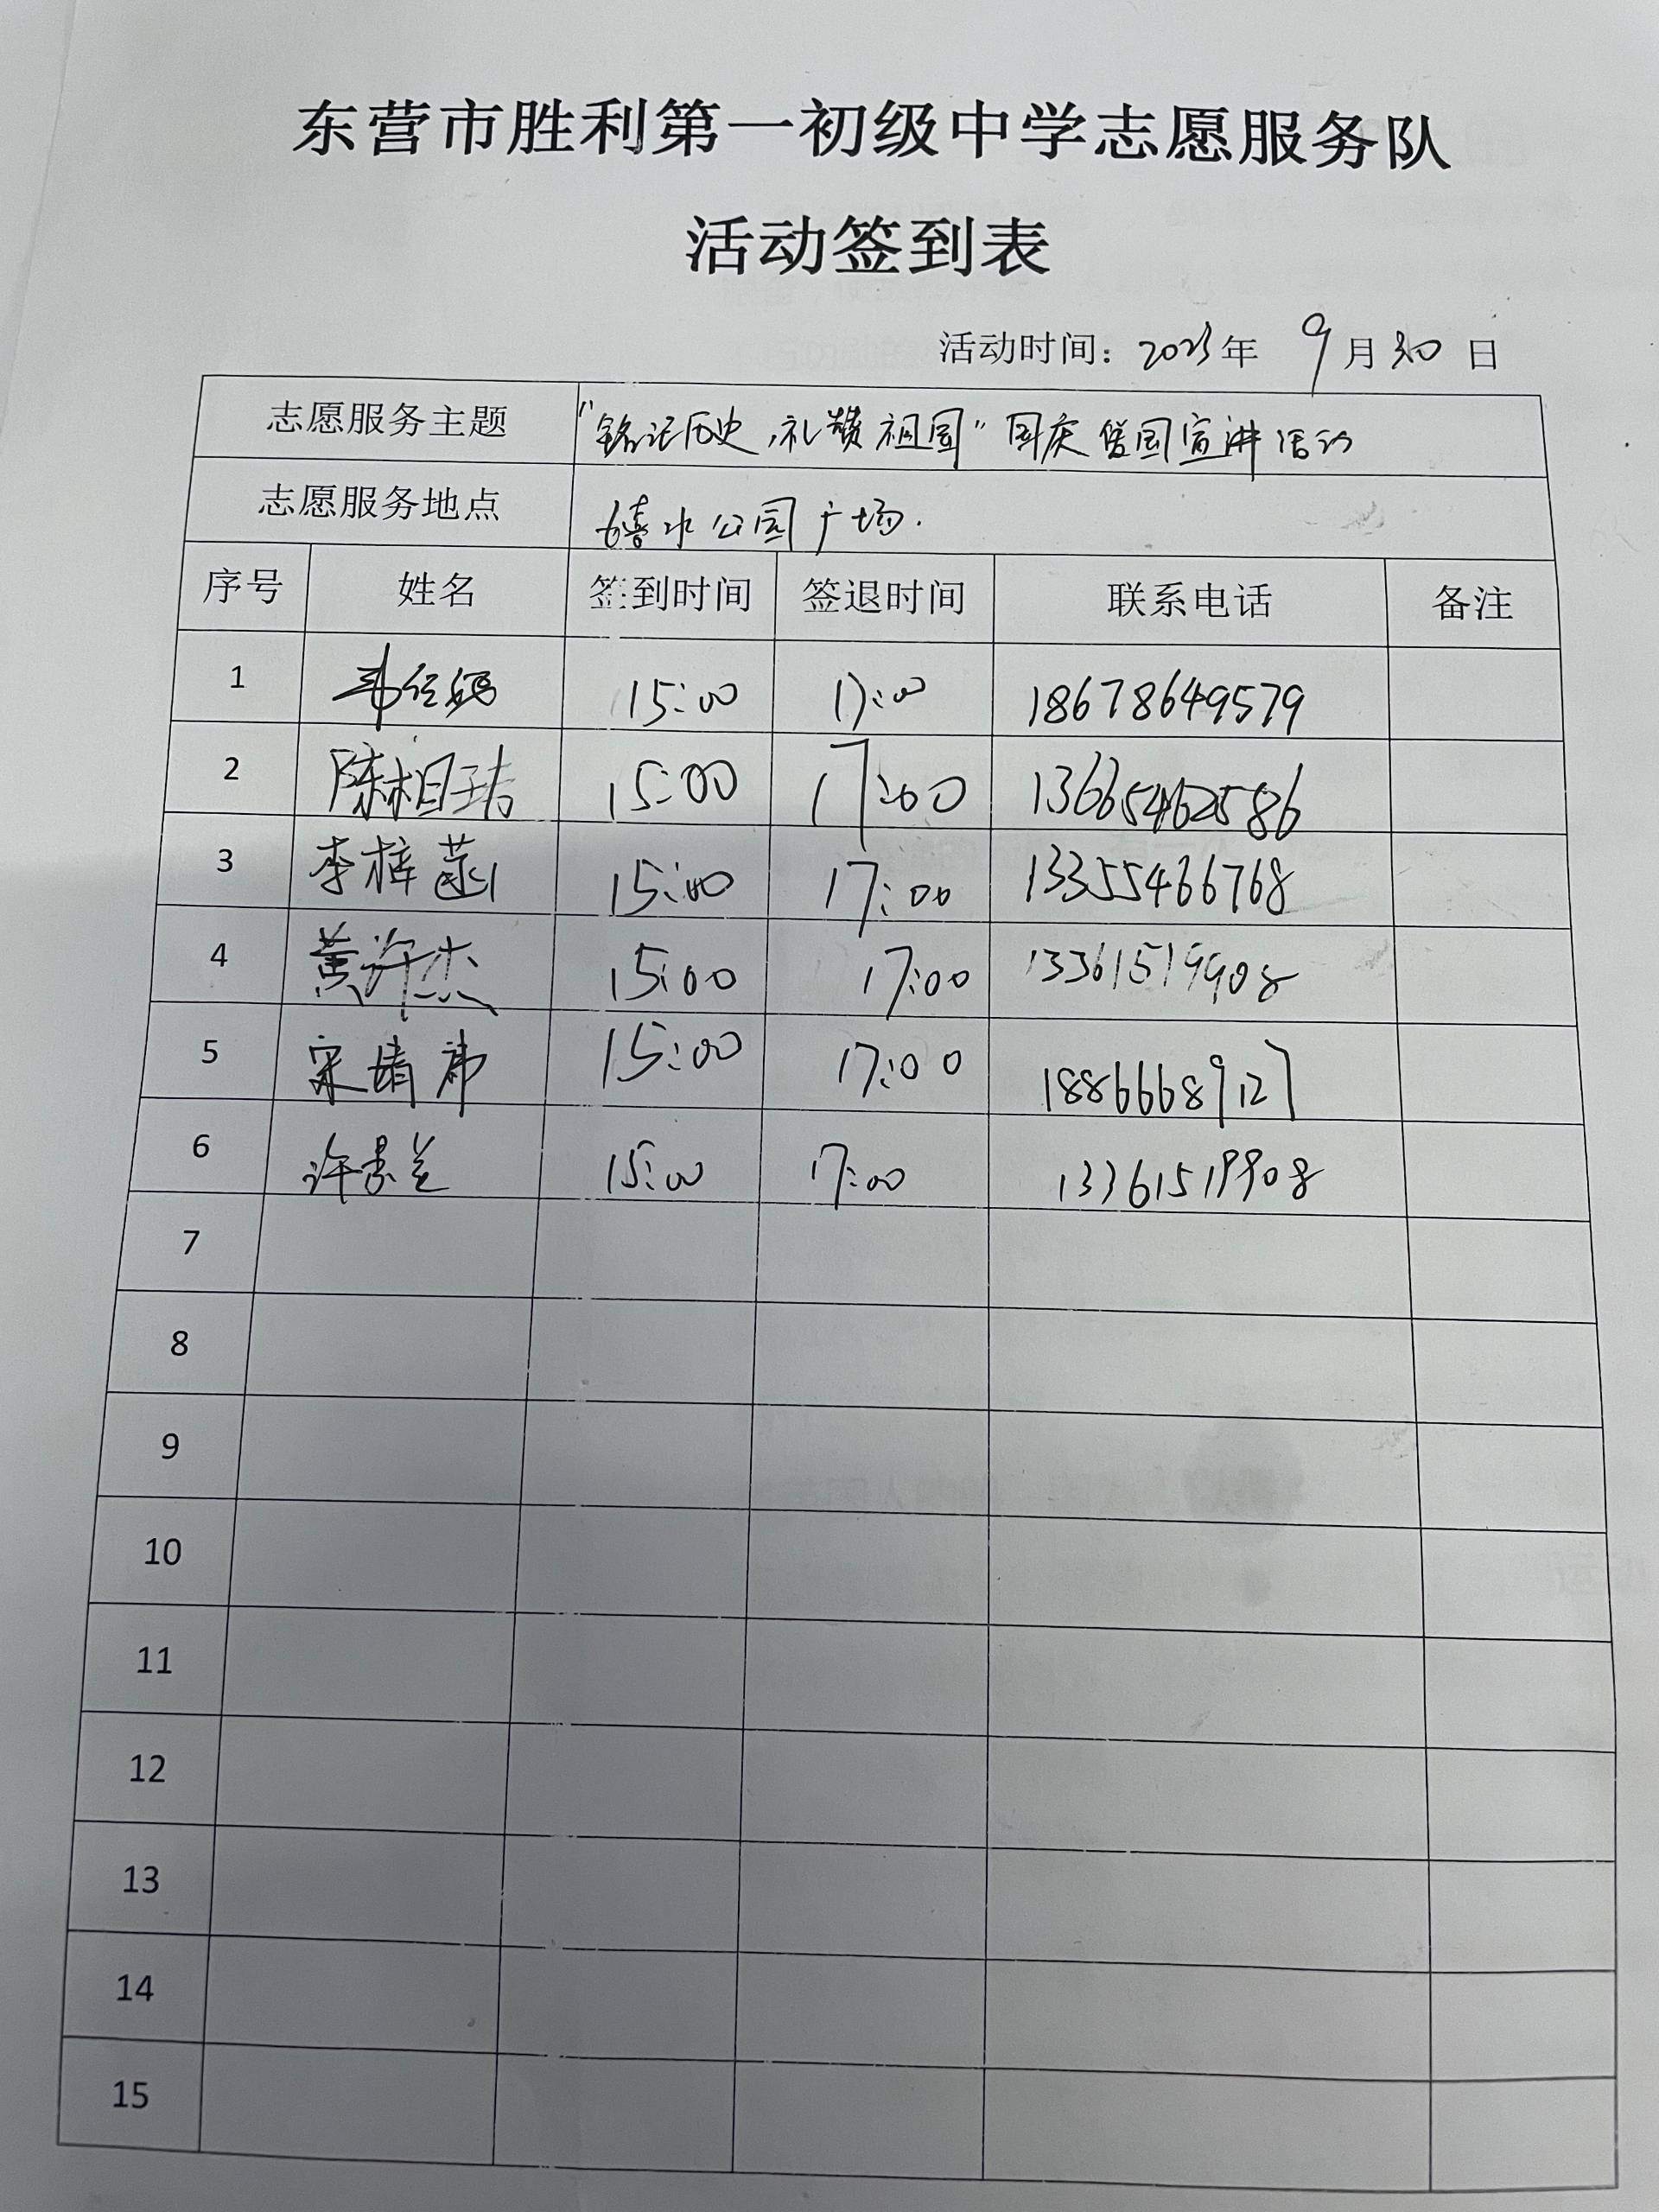 东营市胜利第一初级中学志愿服务队
活动签到表
活动时间：2023年 9月30日
志愿服务主题 “铭记历史，礼赞祖国”国庆爱国宣讲活动
志愿服务地点 嬉水公园广场.
序号 姓名 签到时间 签退时间 联系电话 备注
1 15:00 17:00 18678649579
2 陈相玮 15:00 17:00 13665462586
3 李梓菡 15:00 17:00 13355466768
4 黄许杰 15:00 17:00 13361519908
5 宋婧 15:00 17:00 18866689127
6 许 15:00 17:00 13361519908
7
8
9
10
11
12
13
14
15